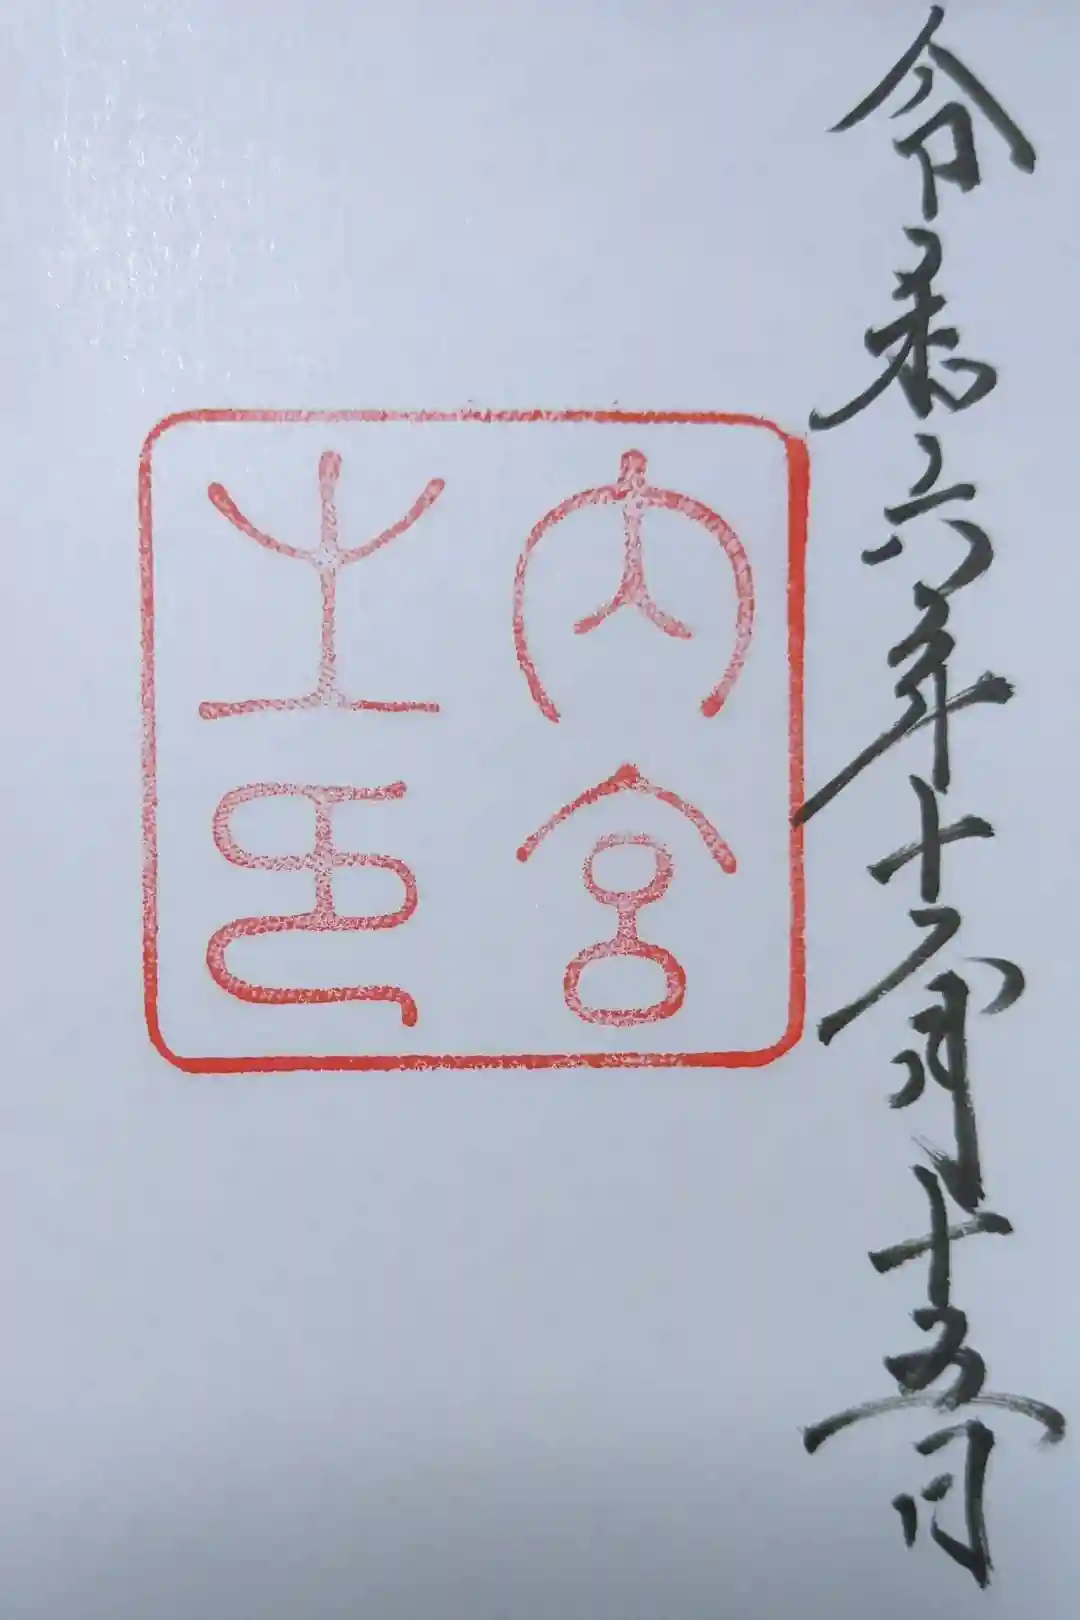 令和六年十二月十五日
内宮
之印